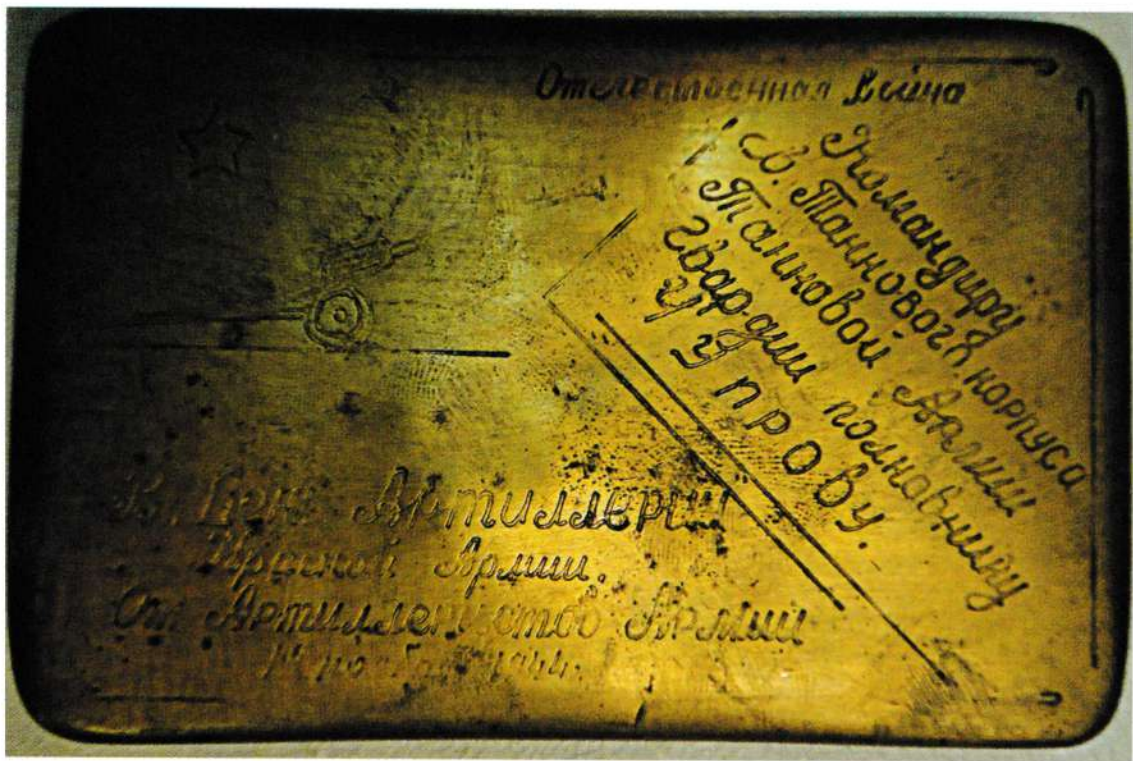 Отечественная Война
Командиру
Танкового корпуса
Танковой Армии
гвардии полковнику
Упрову.
В День Артиллерии
Красной Армии.
От Армии
1944г.